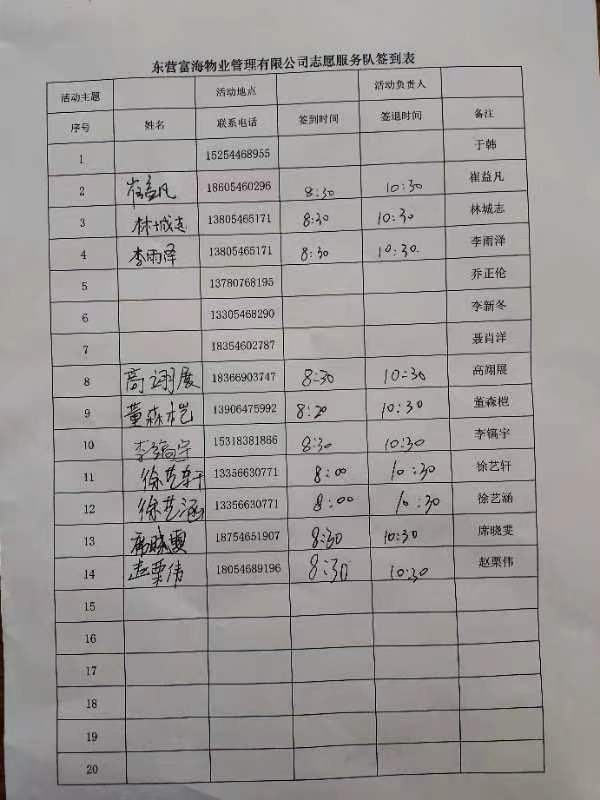 东营富海物业管理有限公司志愿服务队签到表
活动主题 活动地点 活动负责人
序号 姓名 联系电话 签到时间 签退时间 备注
1 15254468955 于韩
2 崔益凡 18605460296 8:30 10:30 崔益凡
3 林城志 13805465171 8:30 10:30 林城志
4 李雨泽 13805465171 8:30 10:30 李雨泽
5 13780768195 乔正伦
6 13305468290 李新冬
7 18354602787 聂肖洋
8 高翊展 18366903747 8:30 10:30 高翊展
9 董森桤 13906475992 8:20 10:30 董森桤
10 李镐宇 15318381866 8:30 10:30 李镐宇
11 徐艺轩 13356630771 8:00 10:30 徐艺轩
12 徐艺涵 13356630771 8:00 10:30 徐艺涵
13 席晓雯 18754651907 8:30 10:30 席晓雯
14 赵栗伟 18054689196 8:30 10:30 赵栗伟
15
16
17
18
19
20